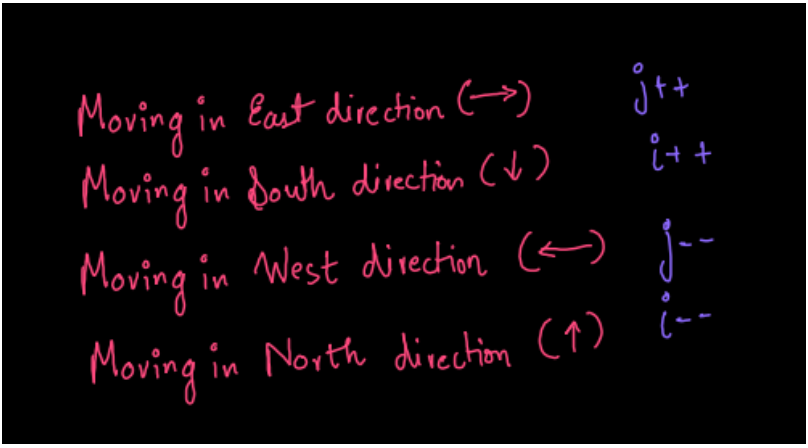 Moving in East direction (→) j++
Moving in South direction (↓) i++
Moving in West direction (←) j--
Moving in North direction (↑) i--